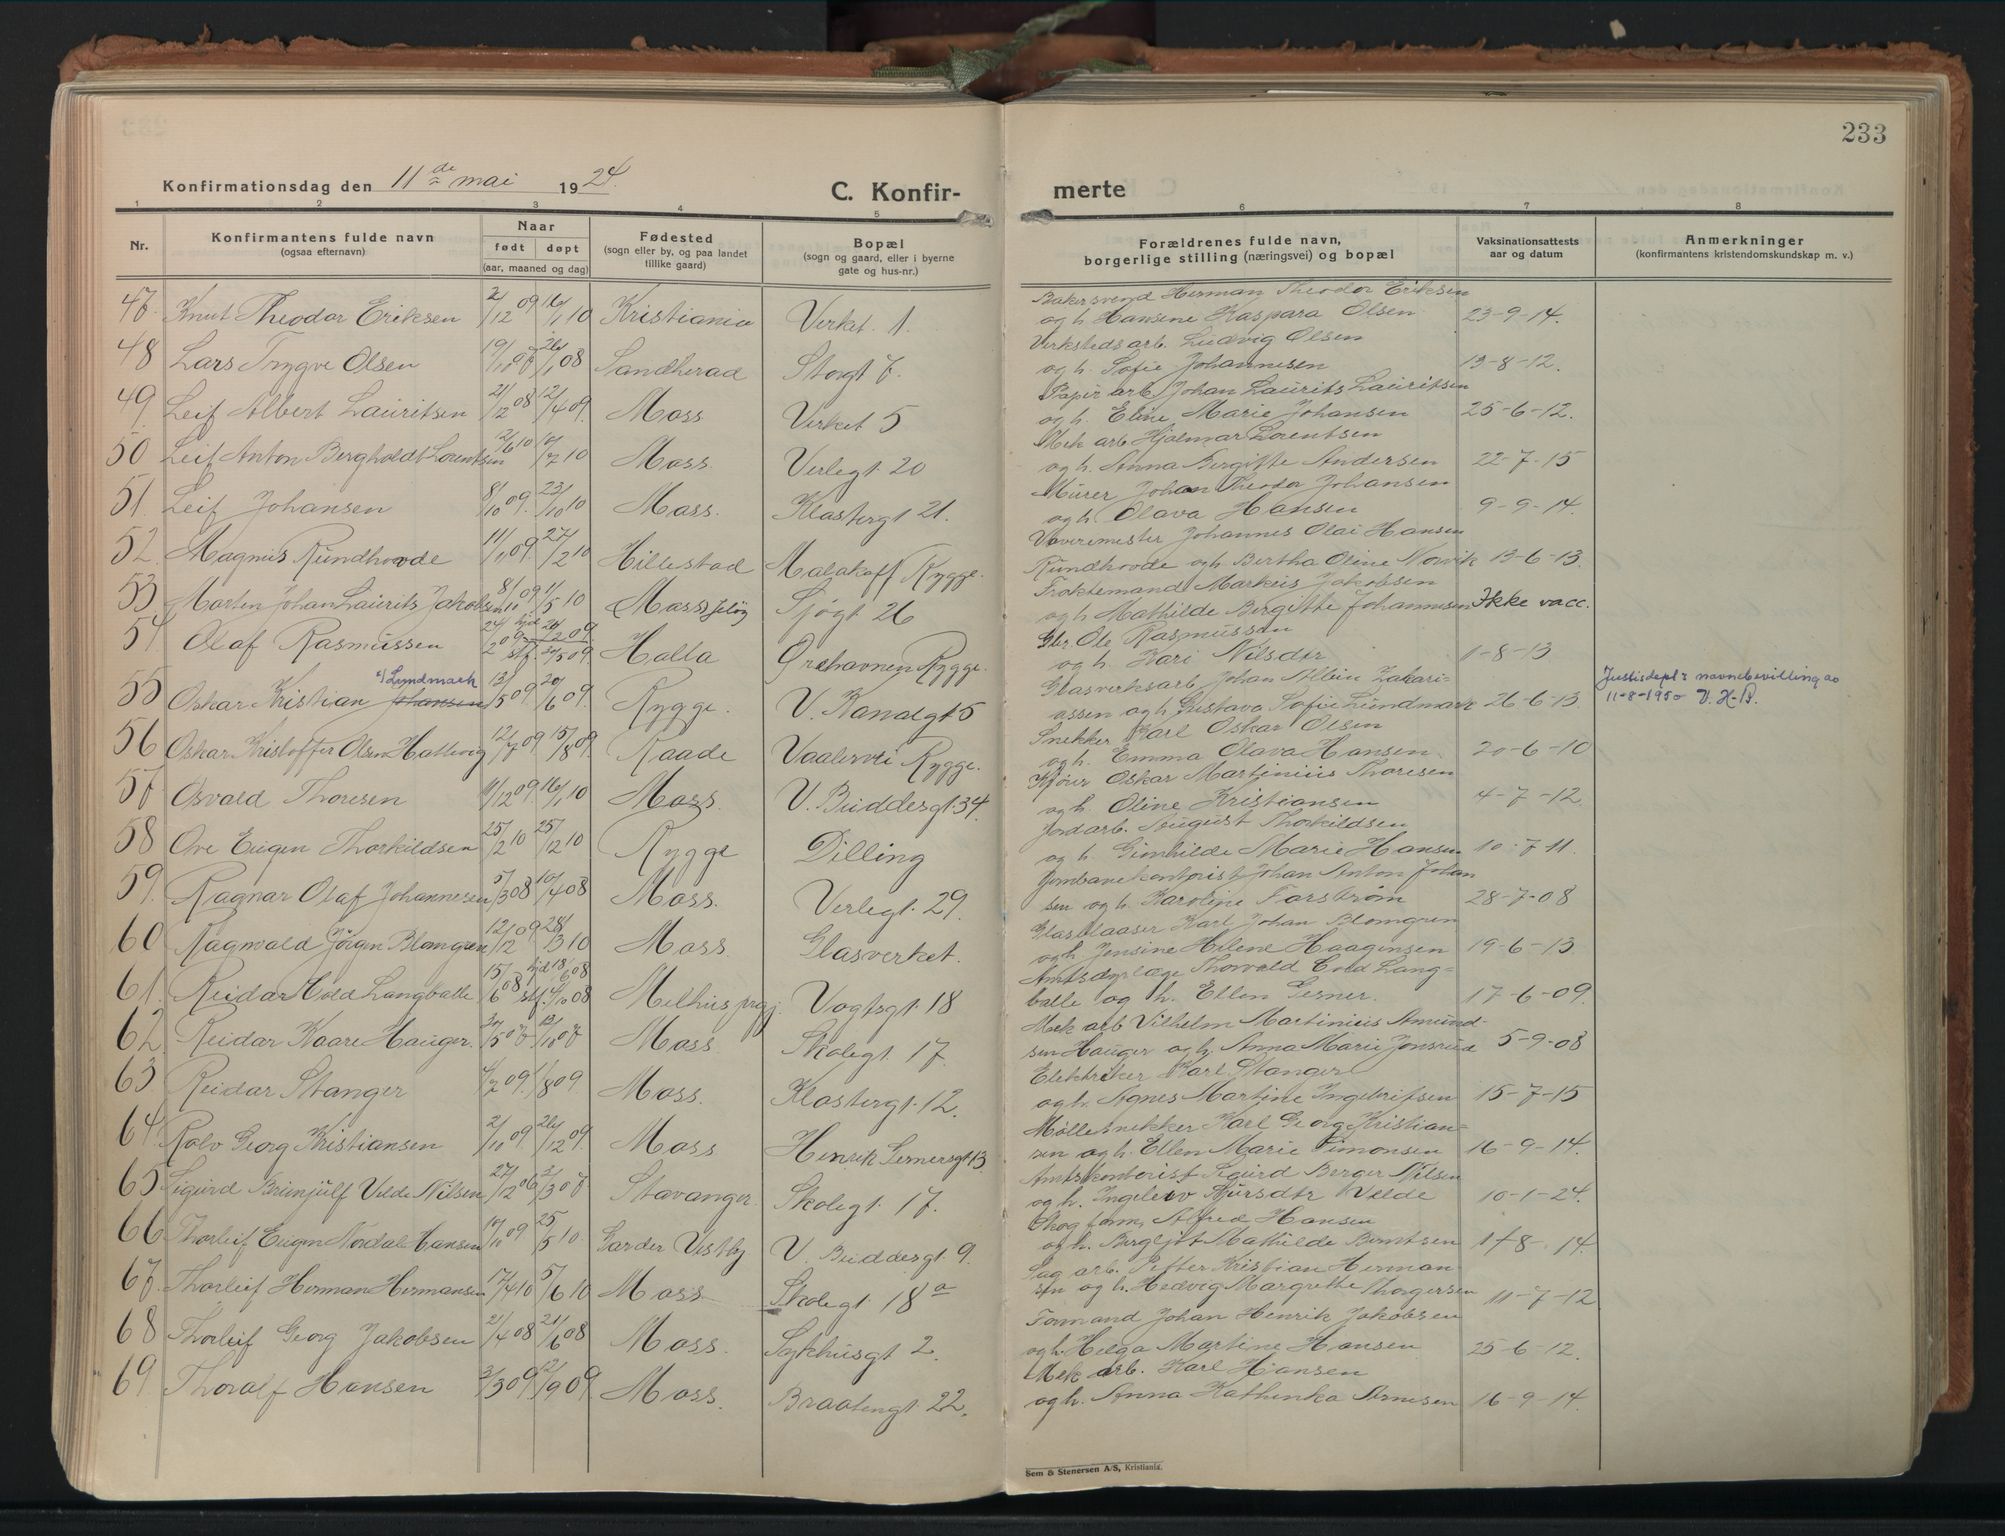 233
Konfirmationsdag den 11de mai 1924.
C. Konfir-
merte
1 2 3 4 5 6 7 8
Nr.
Konfirmantens fulde navn
(ogsaa efternavn)
Naar
født døpt
(aar, maaned og dag)
Fødested
(sogn eller by, og paa landet
tillike gaard)
Bopæl
(sogn og gaard, eller i byerne
gate og hus-nr.)
Forældrenes fulde navn,
borgerlige stilling (næringsvei) og bopæl
Vaksinationsattests
aar og datum
Anmerkninger
(konfirmantens kristendomskundskap m. v.)
Bakersvend Herman Theodor Eriksen
47 Knut Theodor Eriksen 2/12 09 16/1 10 Kristiania Verket 1. og h. Hansine Kaspara Olsen 23-9-14.
Verkstedsarb. Ludvig Olsen
48 Lars Trygve Olsen 19/10 07 26/1 08 Sandherad Storgt 7. og h. Sofie Johannesen 13-8-12.
Papir arb. Johan Laurits Lauritsen
49. Leif Albert Lauritsen 21/12 08 12/4 09. Moss Verket 5 og h. Eline Marie Johansen 25-6-12.
Mek arb Hjalmar Lorentsen
50 Leif Anton Bergholdt Lorentsen 2/6 10 10/7 10 Moss. Verlegt 20 og h. Anna Bergitte Andersen 22-7-15
Murer Johan Theodor Johansen
51. Leif Johansen 8/10 09. 23/10 10 Moss. Klostergt 21. og h. Olava Hansen 9-9-14.
Væveremester Johannes Olai Hansen
52. Magnus Rundhovde 11/11 09. 27/2 10 Hillestad Malakoff Rygge. Rundhovde og h. Bertha Oline Norvik 13-6-13.
Fraktemand Markus Jakobsen
53 Marten Johan Laurits Jakobsen 8/10 09 1/5 10 Moss Jeløy Sjøgt 26 og h. Mathilde Bergitte Johannesen Ikke vacc.
Gbr. Ole Rasmussen
54. Olaf Rasmussen 24/2 09. hjd 26/2 09. stf. 30/5 09. Holla Ørehavnen Rygge. og h. Kari Nilsdtr 1-8-13
Lundmark
Glasverksarb Johan Albin Zakari-
55 Oskar Kristian Johansen 13/5 09 20/6 09. Rygge. V. Kanalgt 5 assen og h. Gustava Sofie Lundmark 26-6-13. Justisdept.s navnebevilling av
11-8-1950 V. H-B.
Snekker Karl Oskar Olsen
56 Oskar Kristoffer Olsen Hattevig 12/7 09 15/8 09. Raade Vaalervei Rygge. og h. Emma Olava Hansen. 20-6-10
Kjører Oskar Martinius Thoresen
57. Osvald Thoresen 11/12 09. 16/1 10 Moss. V. Buddesgt 34. og h. Oline Kristiansen 4-7-12.
Jordarb. August Thorkildsen
58 Ove Eugen Thorkildsen 25/2 10 25/12 10 Rygge Dilling og h. Gunhilde Marie Hansen 10-7-11.
Jernbanekontorist Johan Anton Johan
59. Ragnar Olaf Johannesen 5/3 08 10/4 08 Moss. Verlegt. 29. sen og h. Karoline Forsstrøm 28-7-08
Glasblaaser Karl Johan Blomgren
60 Ragnvald Jørgen Blomgren 12/12 09 28/3 10 Moss Glasverket. og h. Jensine Helene Haagensen 19-6-13.
Amtsdyrlæge Thorvald Lang-
61. Reidar Langballe 15/6 08 hjd 18/6 08 stf. 4/10 08 Melhus prgj. Vogtsgt 18 balle og h. Ellen Gesner. 17-6-09.
Mek arb Vilhelm Martinius Amund-
62. Reidar Kaare Hauger. 20/5 07 13/10 07 Moss. Skolegt 17. sen Hauger og h. Anna Marie Jonsrud 5-9-08
Elektriker Karl Stanger
63 Reidar Stanger 4/2 09. 1/8 09 Moss. Klostergt. 12. og h. Agnes Martine Ingebritsen 15-7-15
Møllesnekker Karl Georg Kristian-
64. Rolv Georg Kristiansen 2/10 09 26/12 09. Moss Henrik Gernersgt 13 sen og h. Ellen Marie Simonsen 16-9-14.
Amtskontorist Sigurd Berger Nilsen
65 Sigurd Brunjulf Velde Nilsen 27/12 06 3/3 07 Stavanger. Skolegt 17. og h. Ingelev Velde 10-1-24.
Skog form. Alfred Hansen
66 Thorleif Eugen Nordal Hansen 10/10 09 25/5 10 Garder Vestby V. Buddesgt 9. og h. Bergljot Mathilde Berntsen 17-8-14.
Sag arb. Petter Kristian Herman-
67. Thorleif Herman Hermansen 17/4 10 5/6 10 Moss Skolegt 18 a sen og h. Hedvig Margrette Thorgersen 11-7-12.
Formand Johan Henrik Jakobsen
68 Thorleif Georg Jakobsen 21/4 08 21/6 08 Moss. Sykhusgt 2. og h. Helga Martine Hansen 25-6-12.
Mek arb. Karl Hansen
69. Thoralf Hansen 3/3 09 12/9 09 Moss. Braatengt 22. og h. Anna Kathinka Arnesen 16-9-14.
Sem & Stenersen A/S, Kristiania.